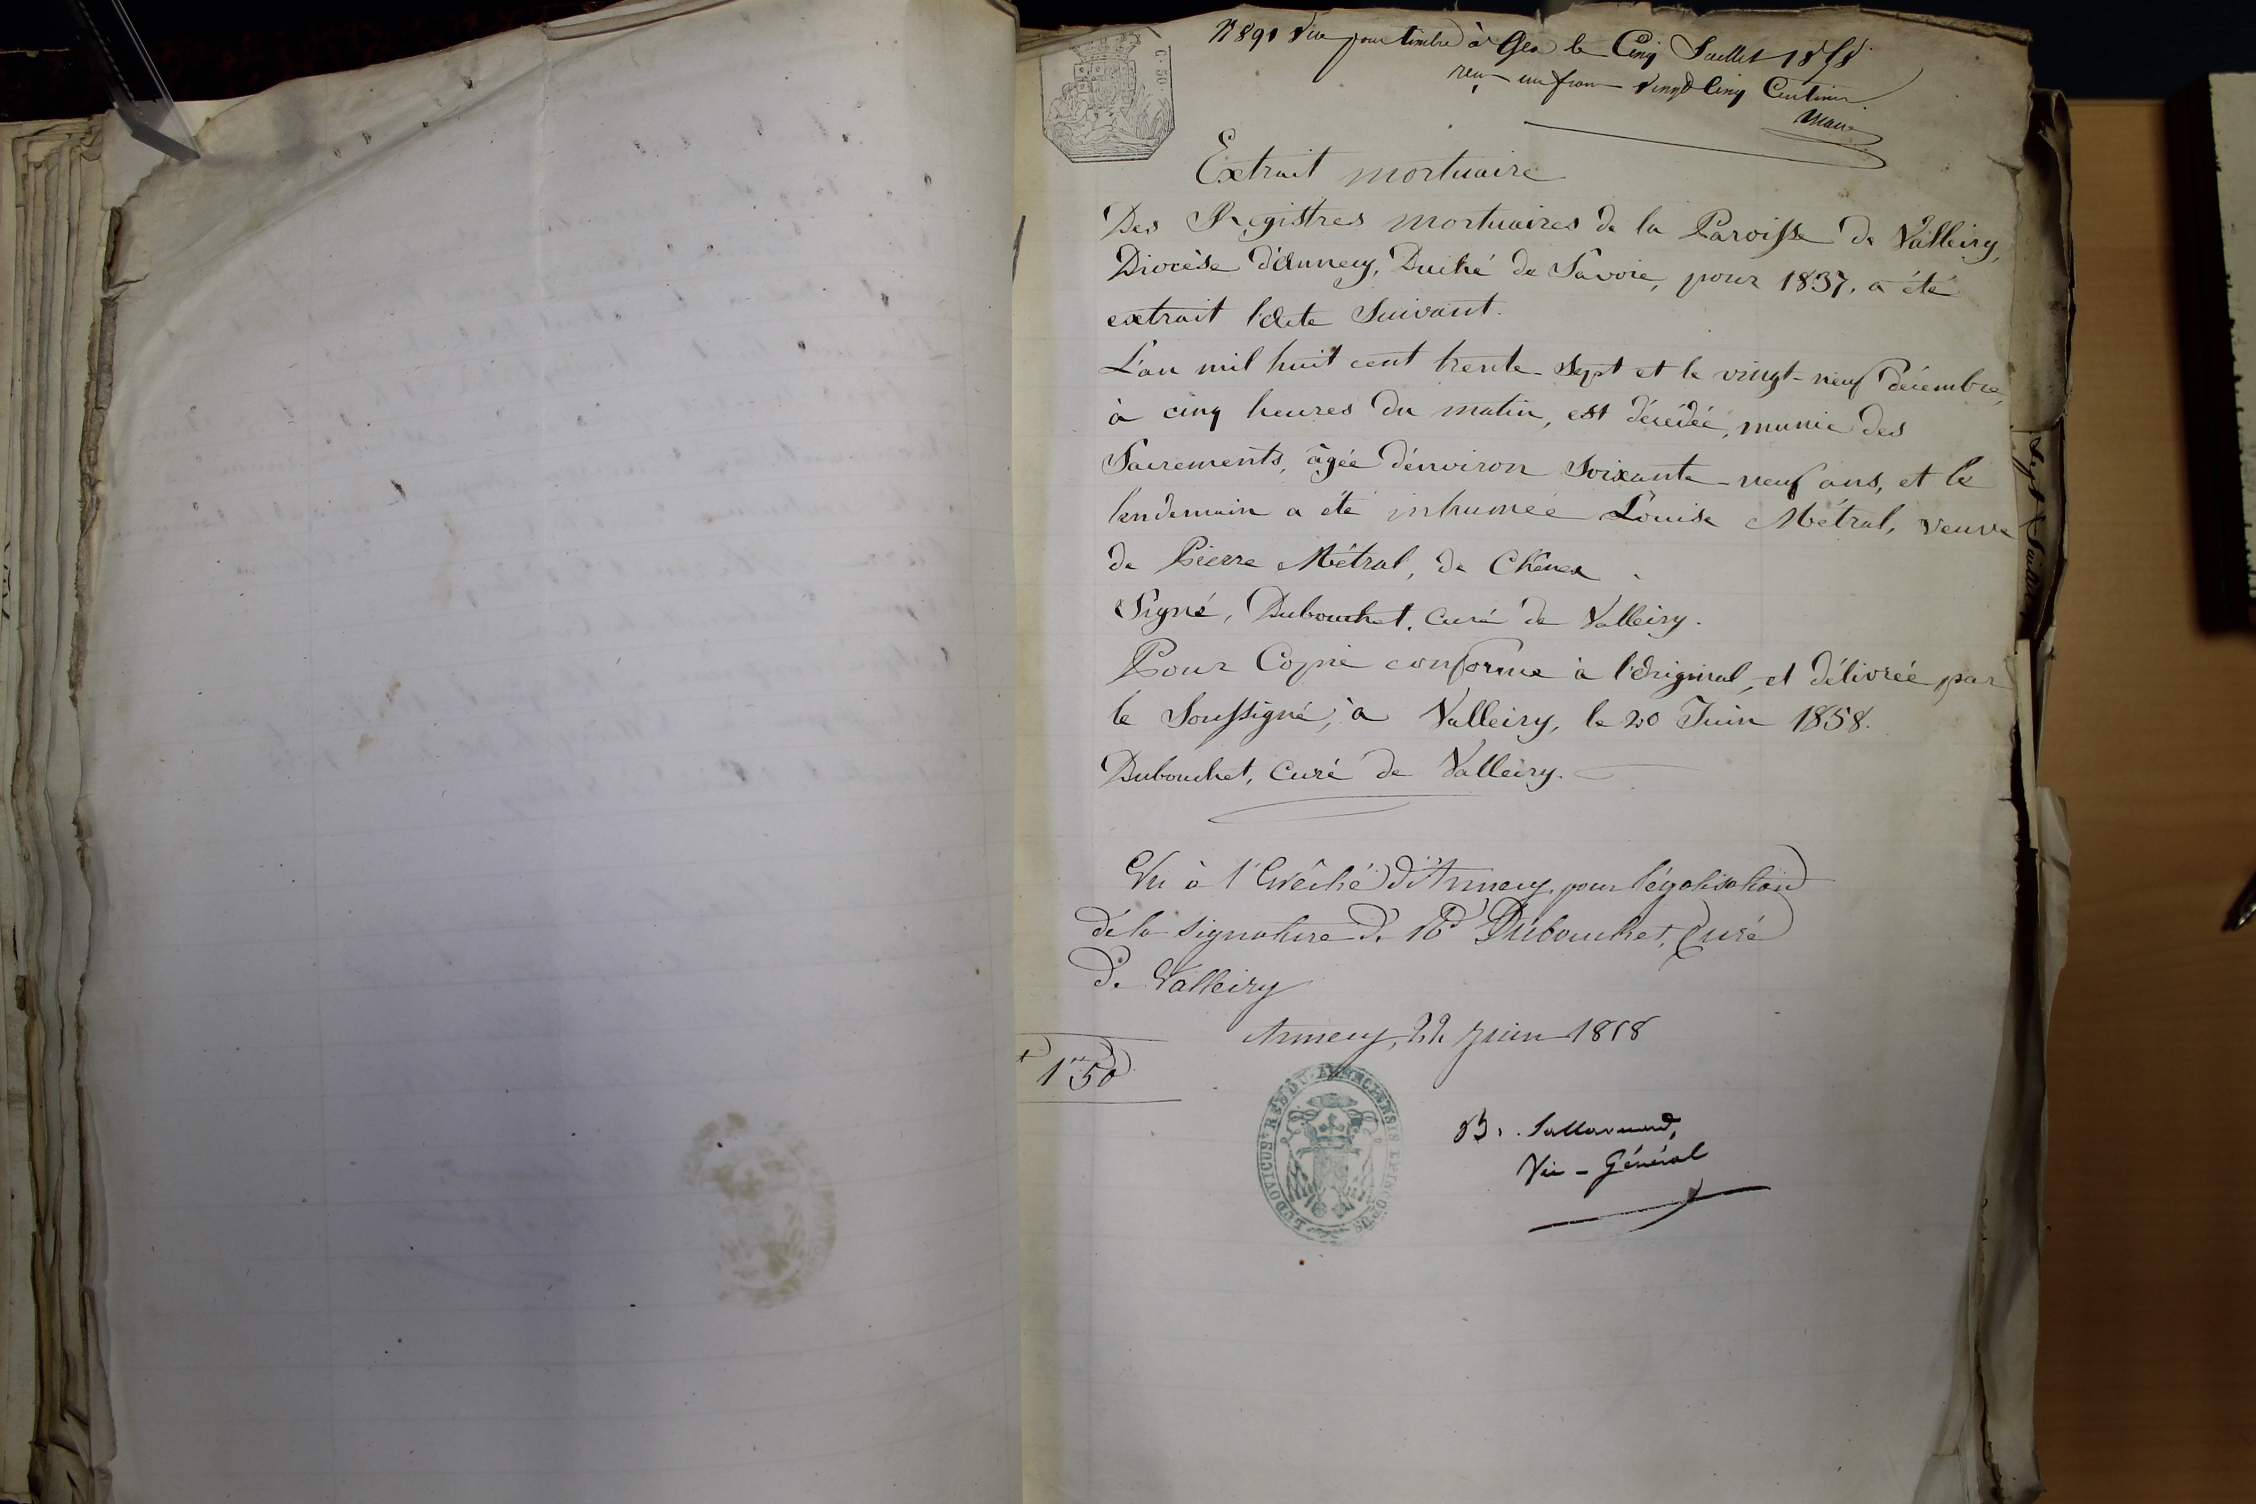 N 891 Vu pour timbre à Gex le Cinq Juillet 1858
reçu un franc vingt Cinq Centimes.
C. 50
Extrait mortuaire
Des Registres mortuaires de la Paroisse de Valleiry,
Diocèse d'Annecy, Duché de Savoie, pour 1837, a été
extrait l'acte Suivant.
L'an mil huit cent trente-sept et le vingt-neuf décembre,
à cinq heures du matin, est décédée, munie des
Sacrements, âgée d'environ soixante-neuf ans, et le
lendemain a été inhumée Louise Métral, veuve
de Pierre Métral, de Chenex.
Signé, Dubouchet, curé de Valleiry.
Pour Copie conforme à l'original, et délivrée par
le Soussigné, à Valleiry, le 20 Juin 1858.
Dubouchet, Curé de Valleiry.
Vu à l'Evêché d'Annecy, pour légalisation
de la signature de Rd Dubouchet, Curé
de Valleiry
Annecy, 22 juin 1858
1 50
LUDOVICUS RENDU ANNECIENSIS EPISCOPUS
Vic-Général
Sept Juillet